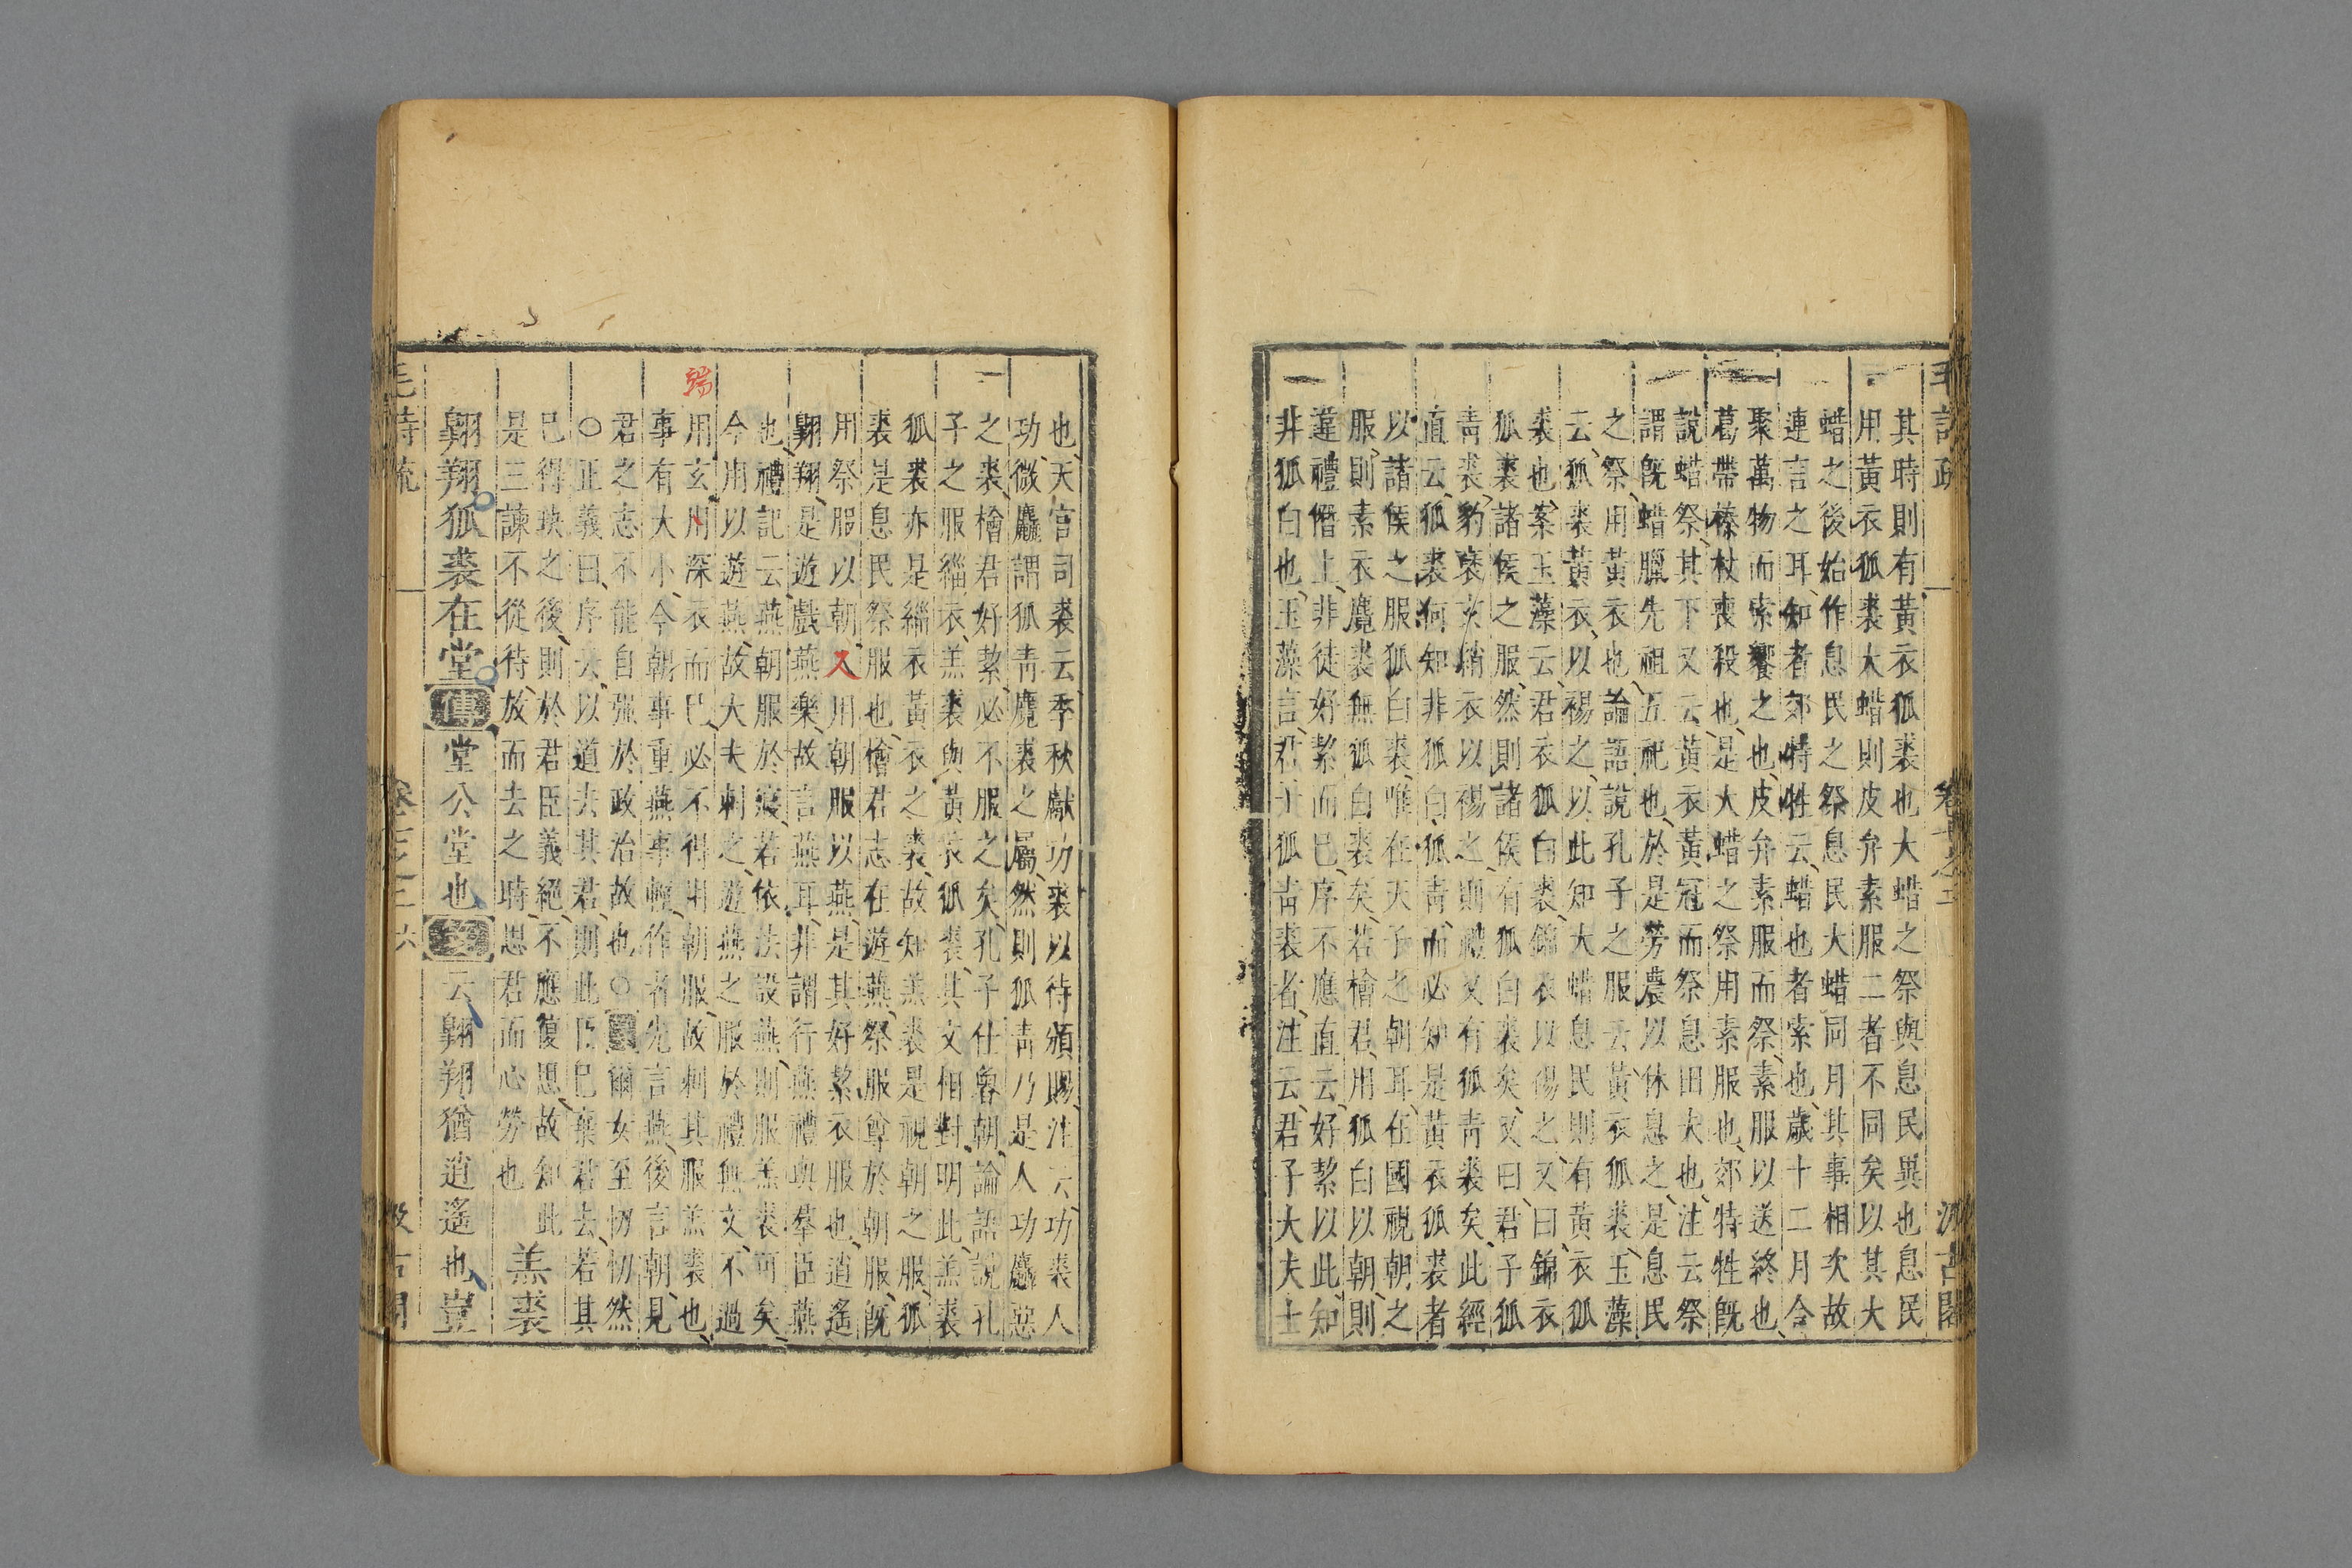 其時則有黃衣狐裘也大蜡之祭與息民異也息民
用黃衣狐裘大蜡則皮弁素服二者不同矣以其大
蜡之後始作息民之祭息民大蜡同月其事相次故
連言之耳知者郊特牲云蜡也者索也歲十二月合
聚萬物而索饗之也皮弁素服而祭素服以送終也
葛帶榛杖喪殺也是大蜡之祭用素服也郊特牲既
說蜡祭其下又云黃衣黃冠而祭息田夫也注云祭
謂既蜡臘先祖五祀也於是勞農以休息之是息民
之祭用黃衣也論語說孔子之服云黃衣狐裘玉藻
云狐裘黃衣以裼之以此知大蜡息民則有黃衣狐
裘也案玉藻云君衣狐白裘錦衣以裼之又曰錦衣
狐裘諸侯之服然則諸侯有狐白裘矣又曰君子狐
青裘豹褎玄綃衣以裼之則禮又有狐青裘矣此經
直云狐裘何知非狐白狐青而必知是黃衣狐裘者
以諸侯之服狐白裘唯在天子之朝耳在國視朝之
服則素衣麑裘無狐白裘矣若檜君用狐白以朝則
違禮僭上非徒好絜而已序不應直云好絜以此知
非狐白也玉藻言君子狐青裘者注云君子大夫士
也天官司裘云季秋獻功裘以待頒賜注云功裘人
功微麤謂狐青麑裘之屬然則狐青乃是人功麤惡
之裘檜君好絜必不服之矣孔子仕魯朝論語說孔
子之服緇衣羔裘與黃衣狐裘其文相對明此羔裘
狐裘亦是緇衣黃衣之裘故知羔裘是視朝之服狐
裘是息民祭服也檜君志在遊燕祭服尊於朝服既
用祭服以朝又用朝服以燕是其好絜衣服也逍遙
翺翔是遊戲燕樂故言燕耳非謂行燕禮與羣臣燕
也禮記云燕朝服於寢若依法設燕則服羔裘可矣
今用以遊燕故大夫刺之遊燕之服於禮無文不過
用玄用深衣而已必不得用朝服故刺其服羔裘也
端
事有大小今朝事重燕事輕作者先言燕後言朝見
君之志不能自強於政治故也○爾女至忉忉然
○正義曰序云以道去其君則此臣已棄君去若其
已得玦之後則於君臣義絕不應復思故知此
是三諫不從待放而去之時思君而心勞也 羔裘
翺翔狐裘在堂傳堂公堂也箋云翺翔猶逍遙也豈